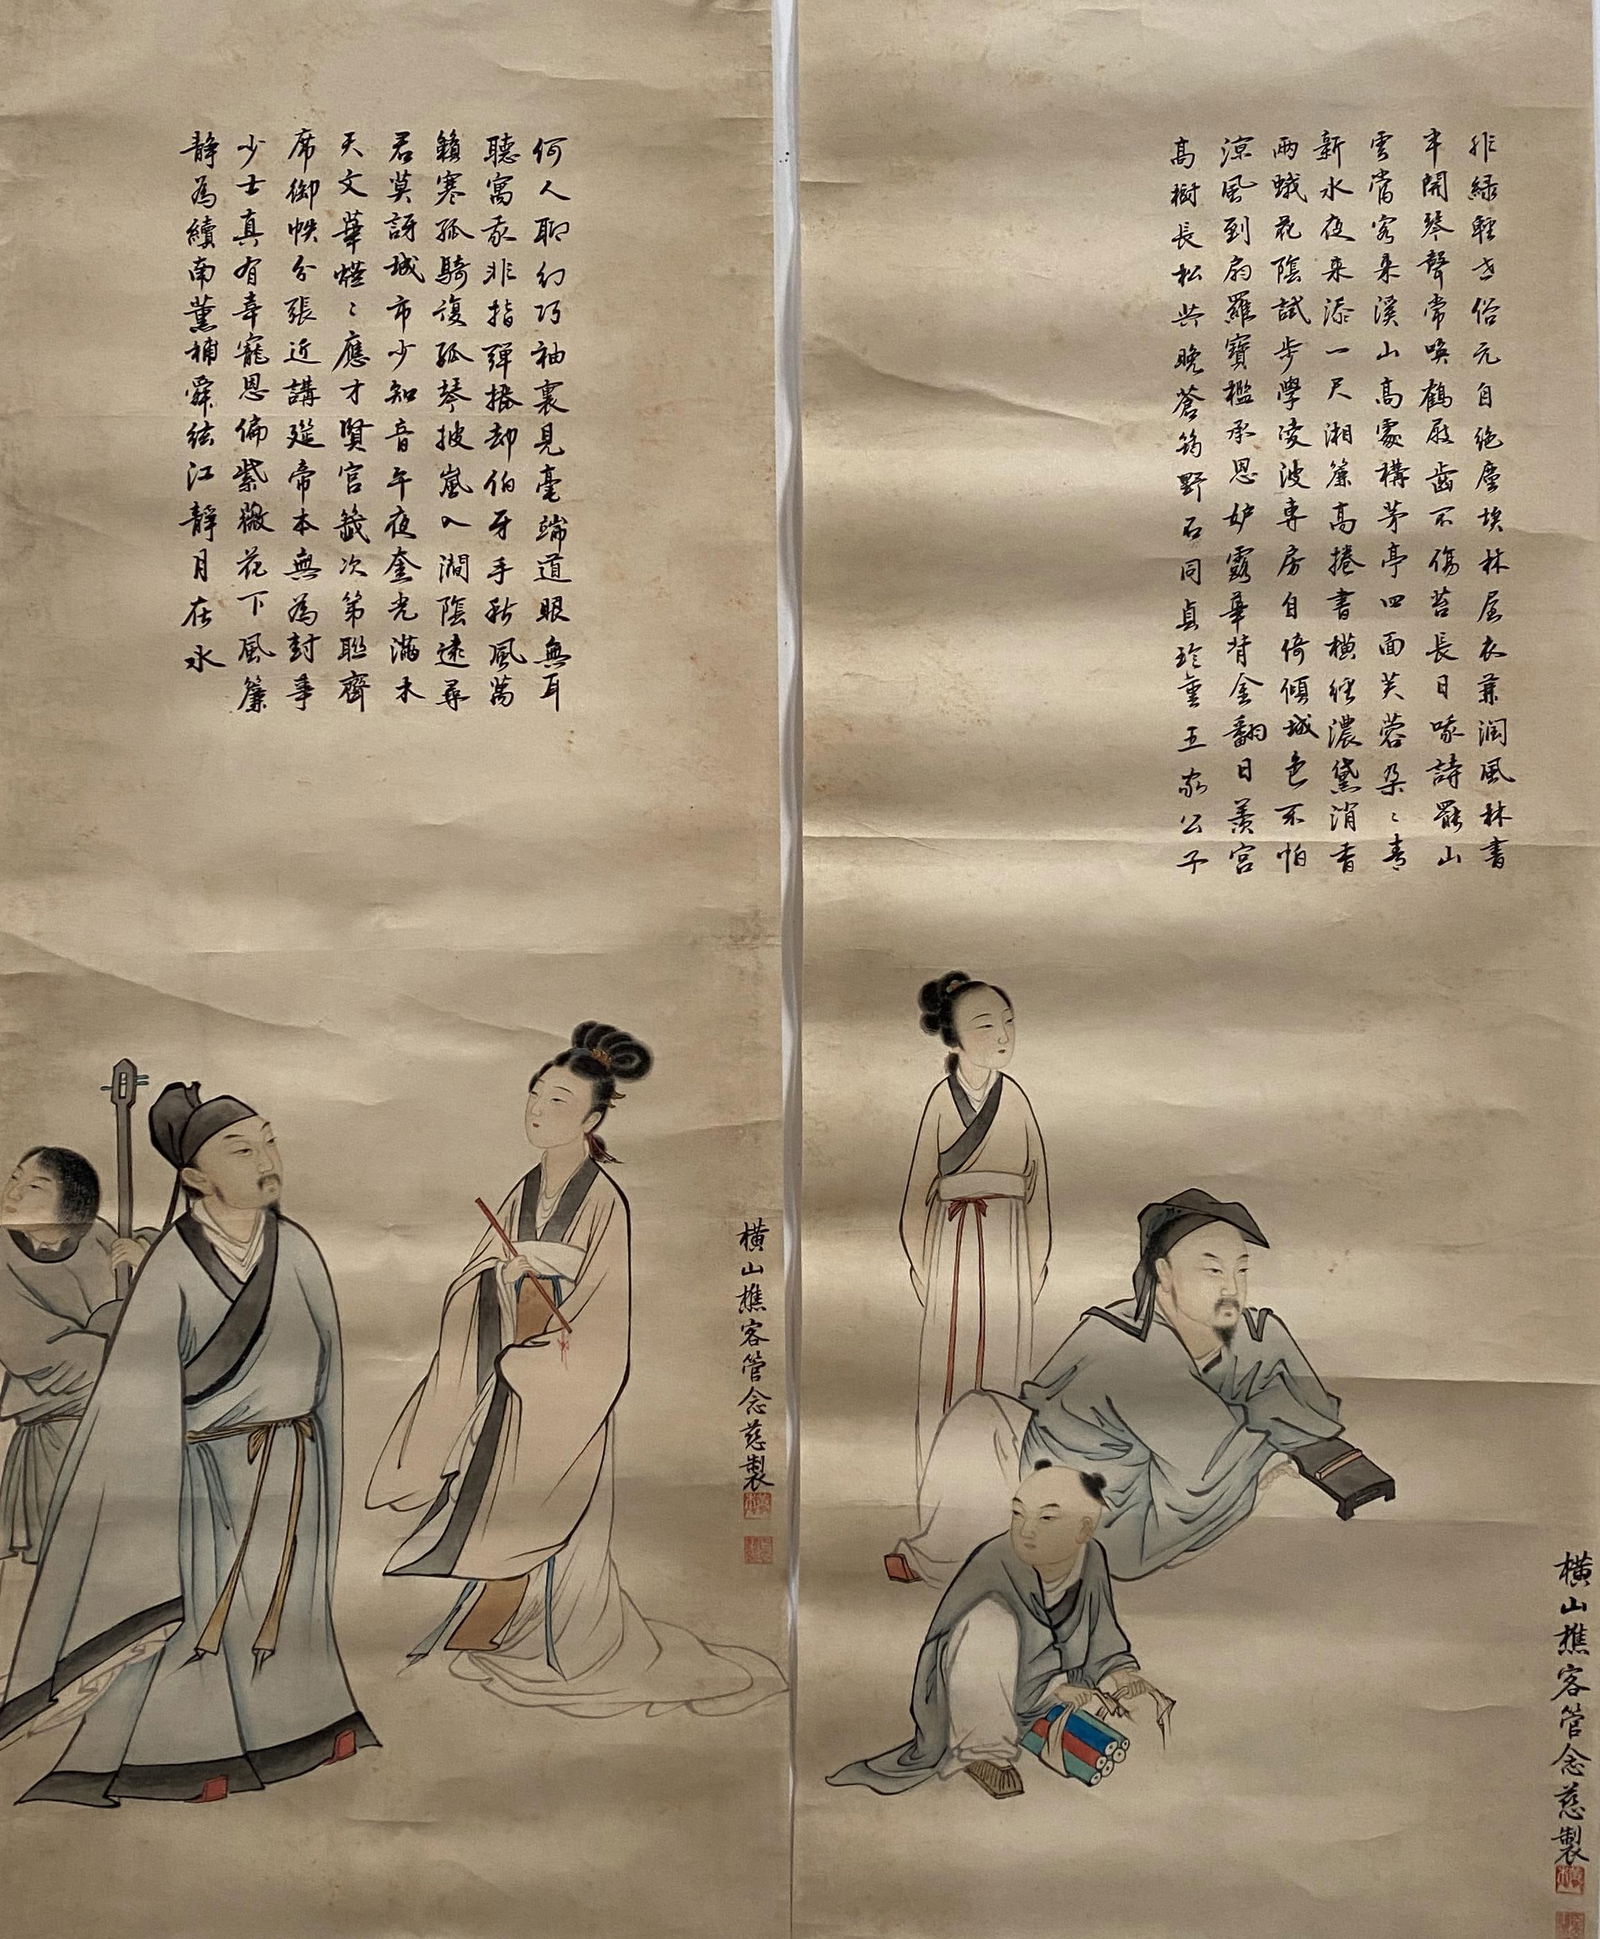 緋綠輕世俗元自絕塵埃林居衣兼潤風林書
半開琴聲常喚鶴屐齒不傷苔長日哦詩罷山
雲當客來溪山高處構茅亭四面芙蓉朶〻青
新水夜來添一尺湘簾高捲書橫經濃黛消香
兩蛾花陰試步學凌波專房自倚傾城色不怕
涼風到扇羅寶檻承恩妒露華背金翻日羨宮
高樹長松共晚蒼筠野石同貞珍重王家公子
橫山樵客管念慈製
何人聊幻巧袖裏見毫端道眼無耳
聽寓言非指彈捲却伯牙手秋風萬
籟寒孤騎復孤琴披嵐入澗陰遠尋
君莫訝城市少知音午夜奎光滿木
天文華熤〻應才賢官籤次第聯齊
席御帙分張近講筵帝本無為封事
少士真有幸寵恩偏紫薇花下風簾
靜為續南薰補舜絃江靜月在水
橫山樵客管念慈製